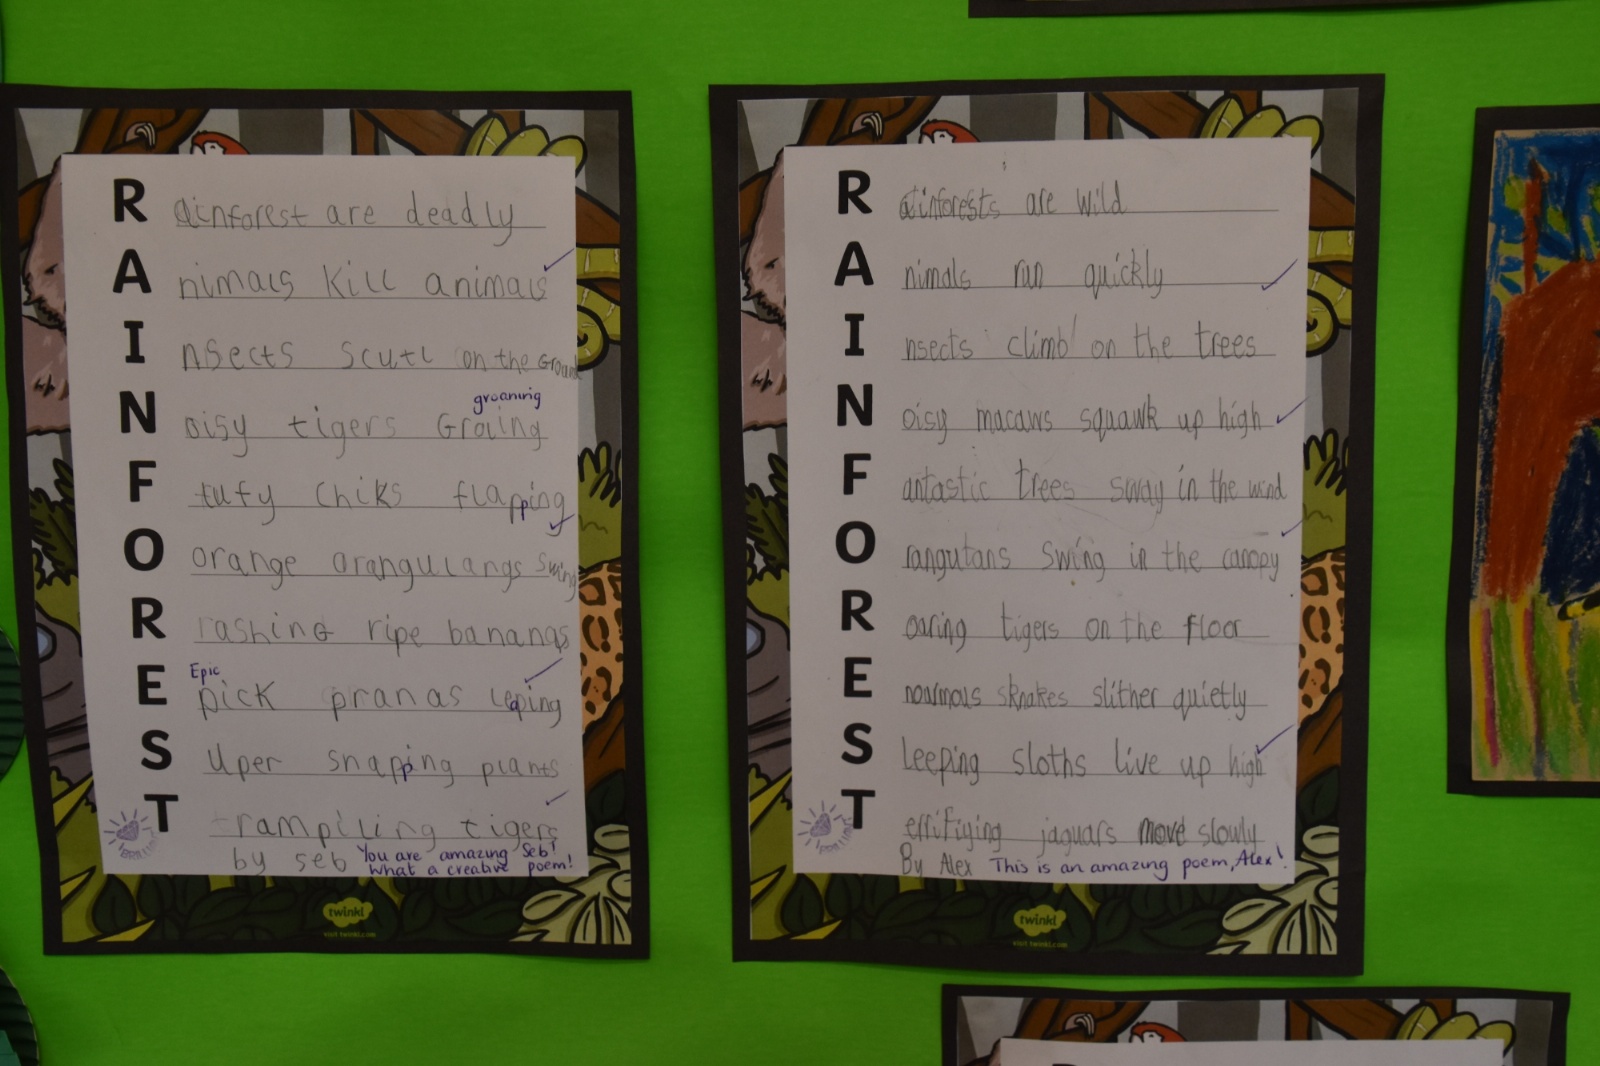 R ainforest are deadly
A nimals Kill animals
I nsects scutl on the Ground
groaning
N oisy tigers Groling
F tufy chiks flapping
O orange orangutangs swing
R rashing ripe bananas
Epic
E pick pranas leping
S Uper snapping plants
T trampiling tigers
by seb You are amazing Seb!
What a creative poem!
twinkl
visit twinkl.com
R ainforests are wild
A nimals run quickly
I nsects climb on the trees
N oisy macaws squawk up high
F antastic trees sway in the wind
O rangutans swing in the canopy
R oaring tigers on the floor
E nourmous snakes slither quietly
S leeping sloths live up high
T errifiying jaguars move slowly
By Alex This is an amazing poem, Alex!
twinkl
visit twinkl.com